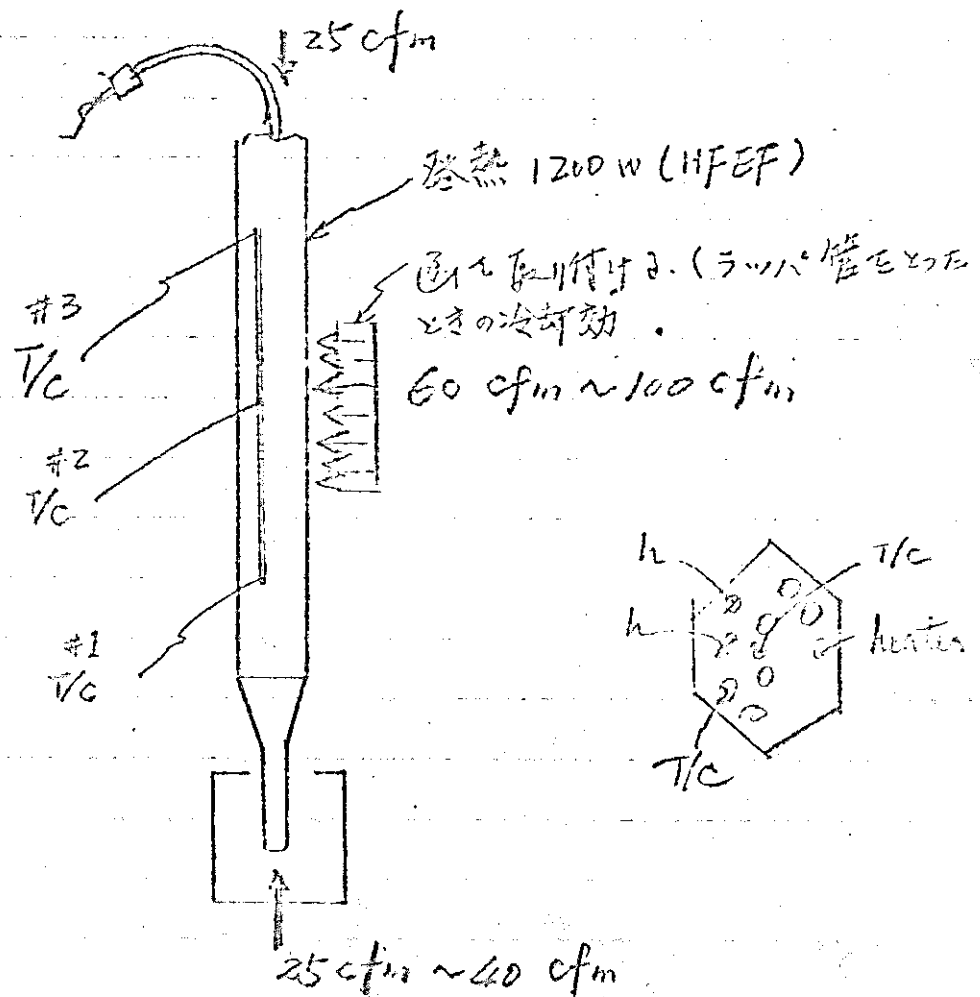 25 cfm
発熱 1200 W (HFEF)
取り付ける. (ラッパ管をとった
ときの冷却効 .
60 cfm ~ 100 cfm
#3
T/C
#2
T/C
#1
T/C
h
T/C
h
heater
T/C
25 cfm ~ 40 cfm